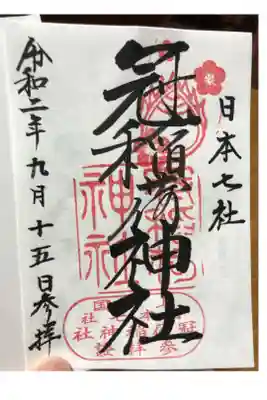 日本七社
冠稲荷神社
神社
令和二年九月十五日参拝